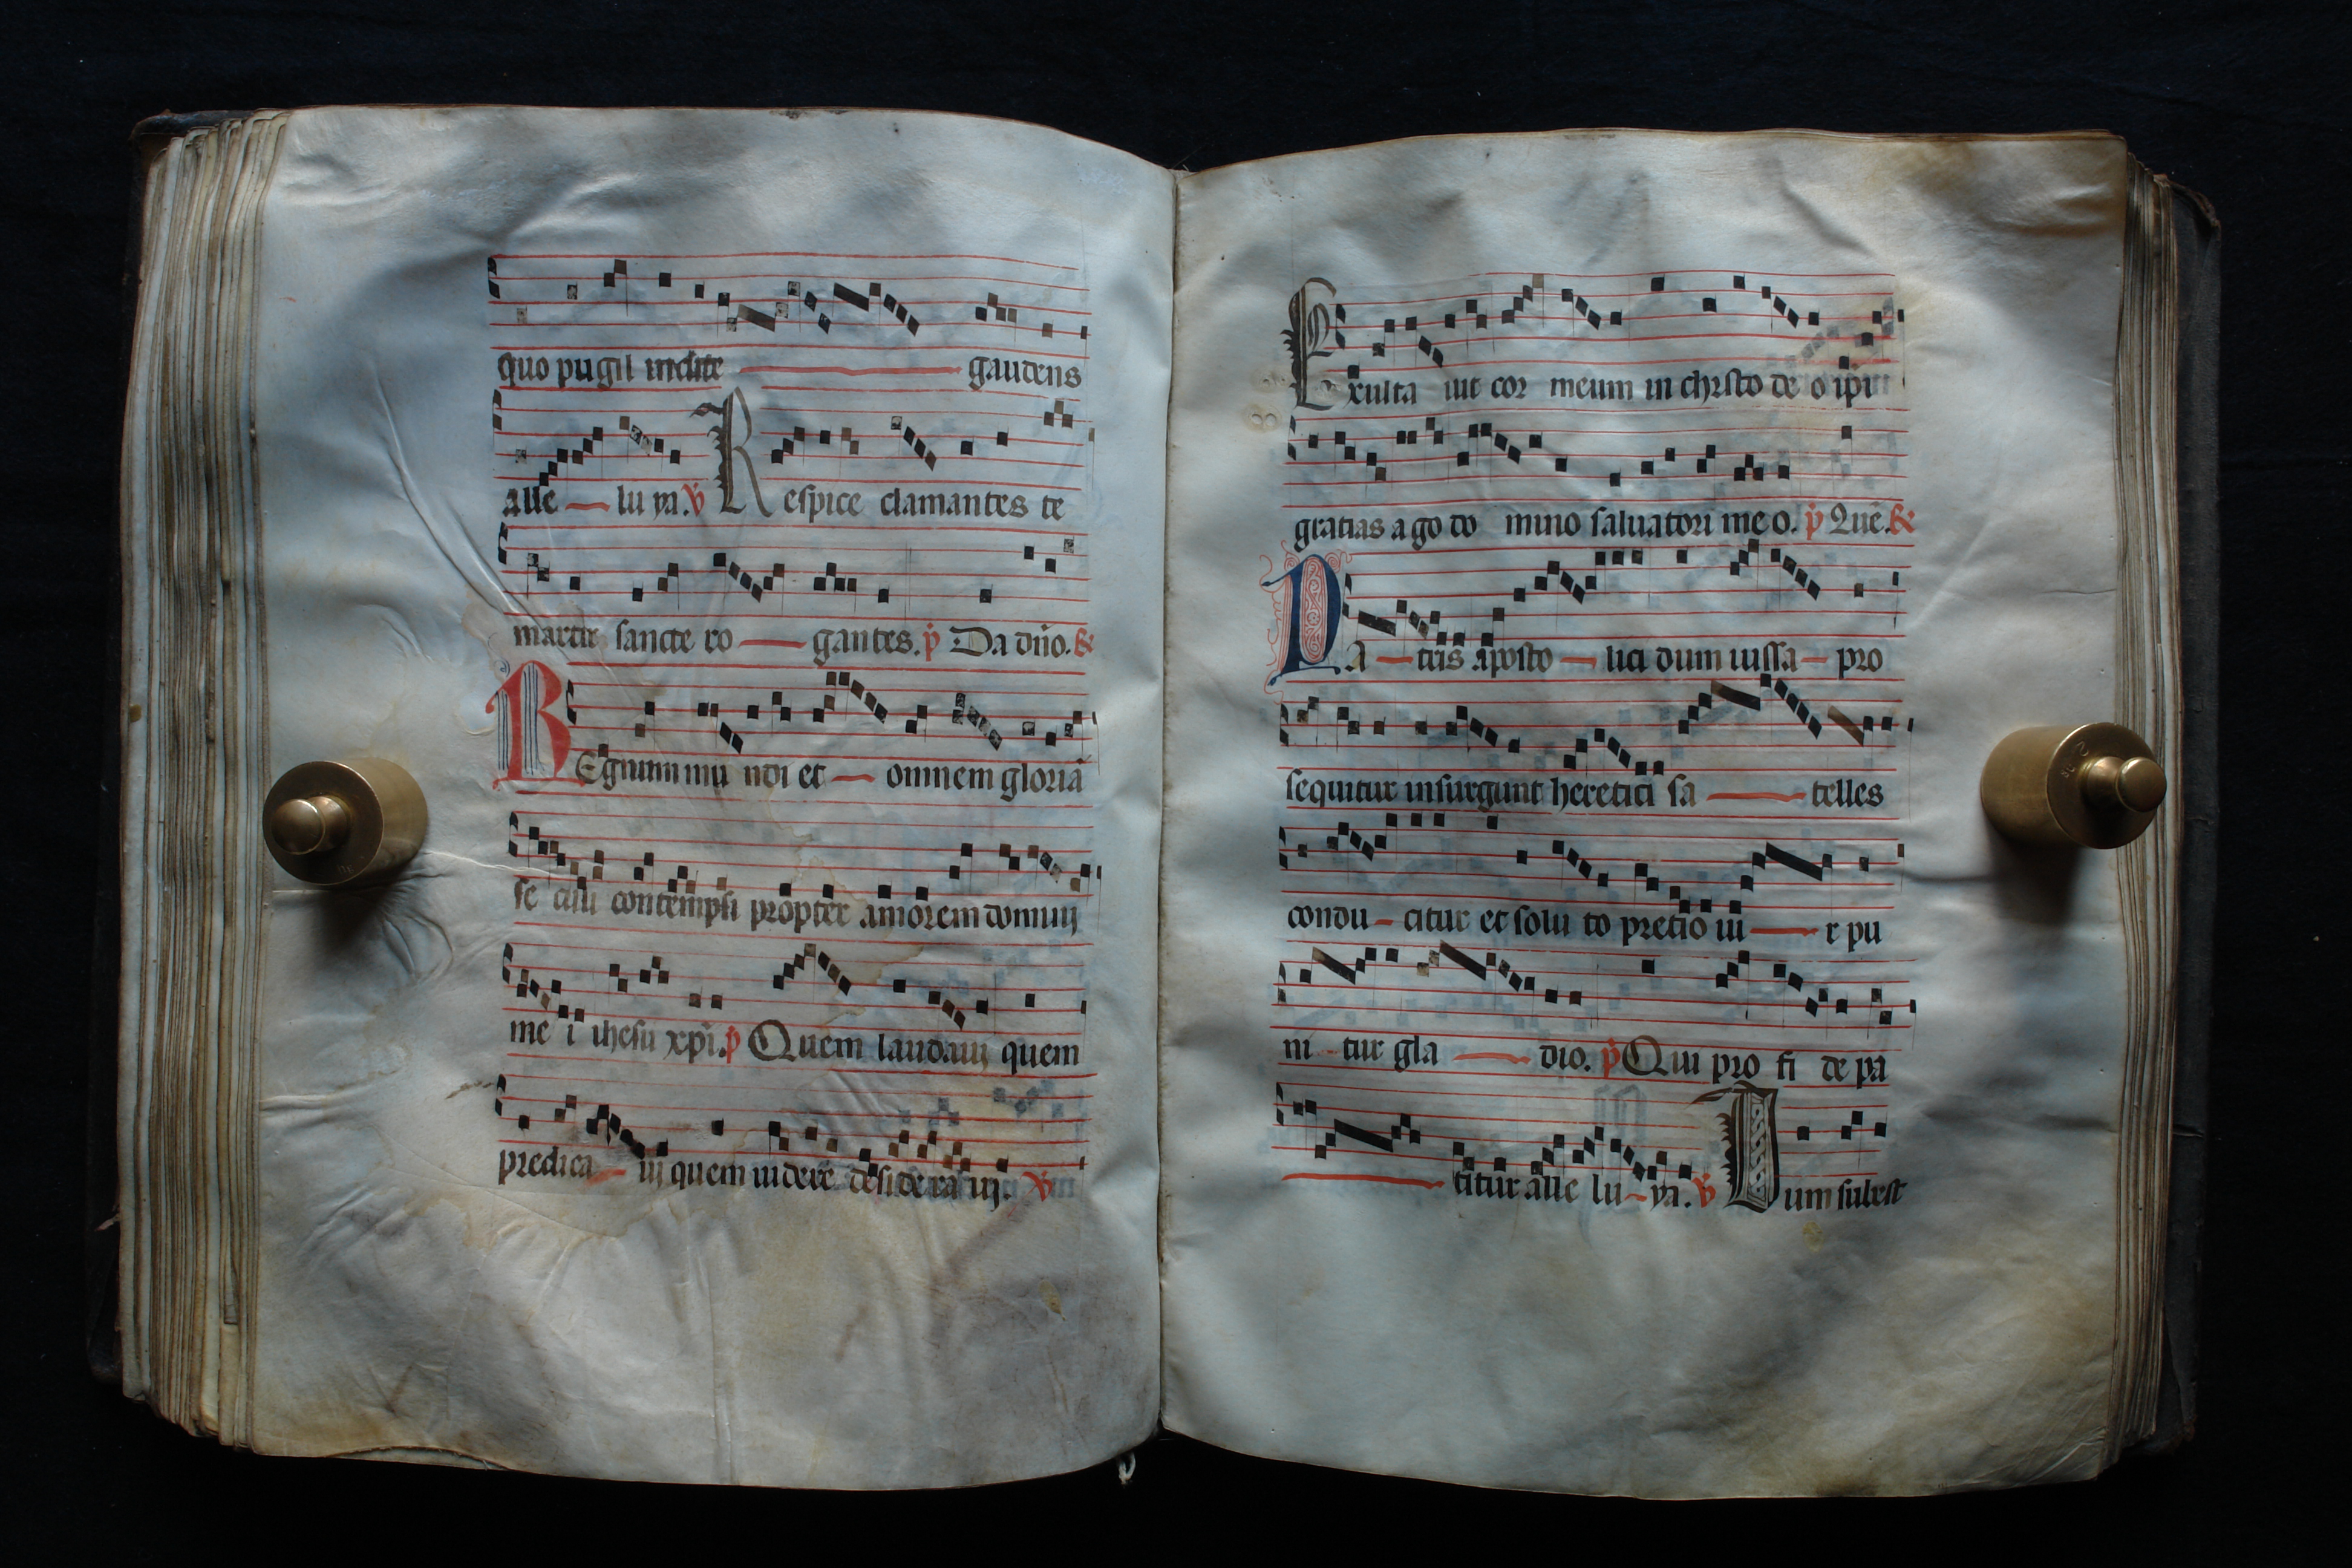 quo pugil inclite gaudens
alle — lu ya. ℣ Respice clamantes te
martir sancte ro — gantes. p̄ Da dn̄o. &
REgnum mu ndi et — omnem gloriā
se culi contempsi propter amorem domini
me i ihesu xpi. p̄ Quem laudaui quem
predica — ui quem uidere desidera ui. ℣
Exulta uit cor meum in christo de o ipi
gratias a go do mino saluatori me o. p̄ Quē. &
PA — tris aposto — lici dum iussa — pro
sequitur insurgunt heretici sa — telles
condu — citur et solu to pretio ui — r pu
ni - tur gla — dio. p̄ Qui pro fi de pa
— titur alle lu — ya. ℣ Dum subest